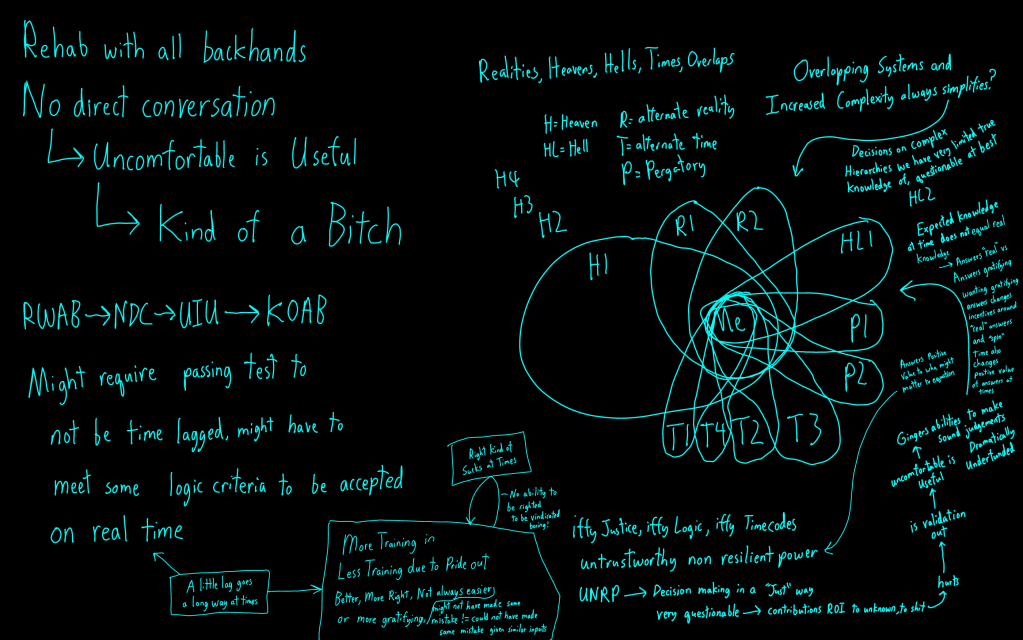 Rehab with all backhands
No direct conversation
Uncomfortable is Useful
Kind of a Bitch
RWAB → NDC → UIU → KOAB
Might require passing test to
not be time lagged, might have to
meet some logic criteria to be accepted
on real time
A little lag goes
a long way at times
Right Kind of
Sucks at Times
No ability to
be righted
to be vindicated
boring!
More Training in
Less Training due to Pride out
Better, More Right, Not always easier
or more gratifying,
might not have made same
mistake != could not have made
same mistake given similar inputs
Realities, Heavens, Hells, Times, Overlaps
H=Heaven
HL=Hell
R=alternate reality
T=alternate time
P=Pergatory
H4
H3
H2
H1
R1
R2
HL1
Me
P1
P2
T1
T4
T2
T3
Overlopping Systems and
Increased Complexity always simplifies?
Decisions on complex
Hierarchies we have very limited true
knowledge of, questionable at best
HL2
Expected knowledge
at time does not equal real
knowledge
→ Answers "real" vs
Answers gratifying
wanting gratifying
answers changes
incentives around
"real" answers
and "spin"
Time also
changes
positive value
of answers at
times
Answers Positive
Value to who might
matter to equation
Gingers abilities to make
sound judgements
Dramatically
Underfunded
uncomfortable is
Useful
is validation
out
hurts
iffy Justice, iffy Logic, iffy Timecodes
untrustworthy non resilient power
UNRP → Decision making in a "Just" way
very questionable → contributions ROI to unknown, to shit